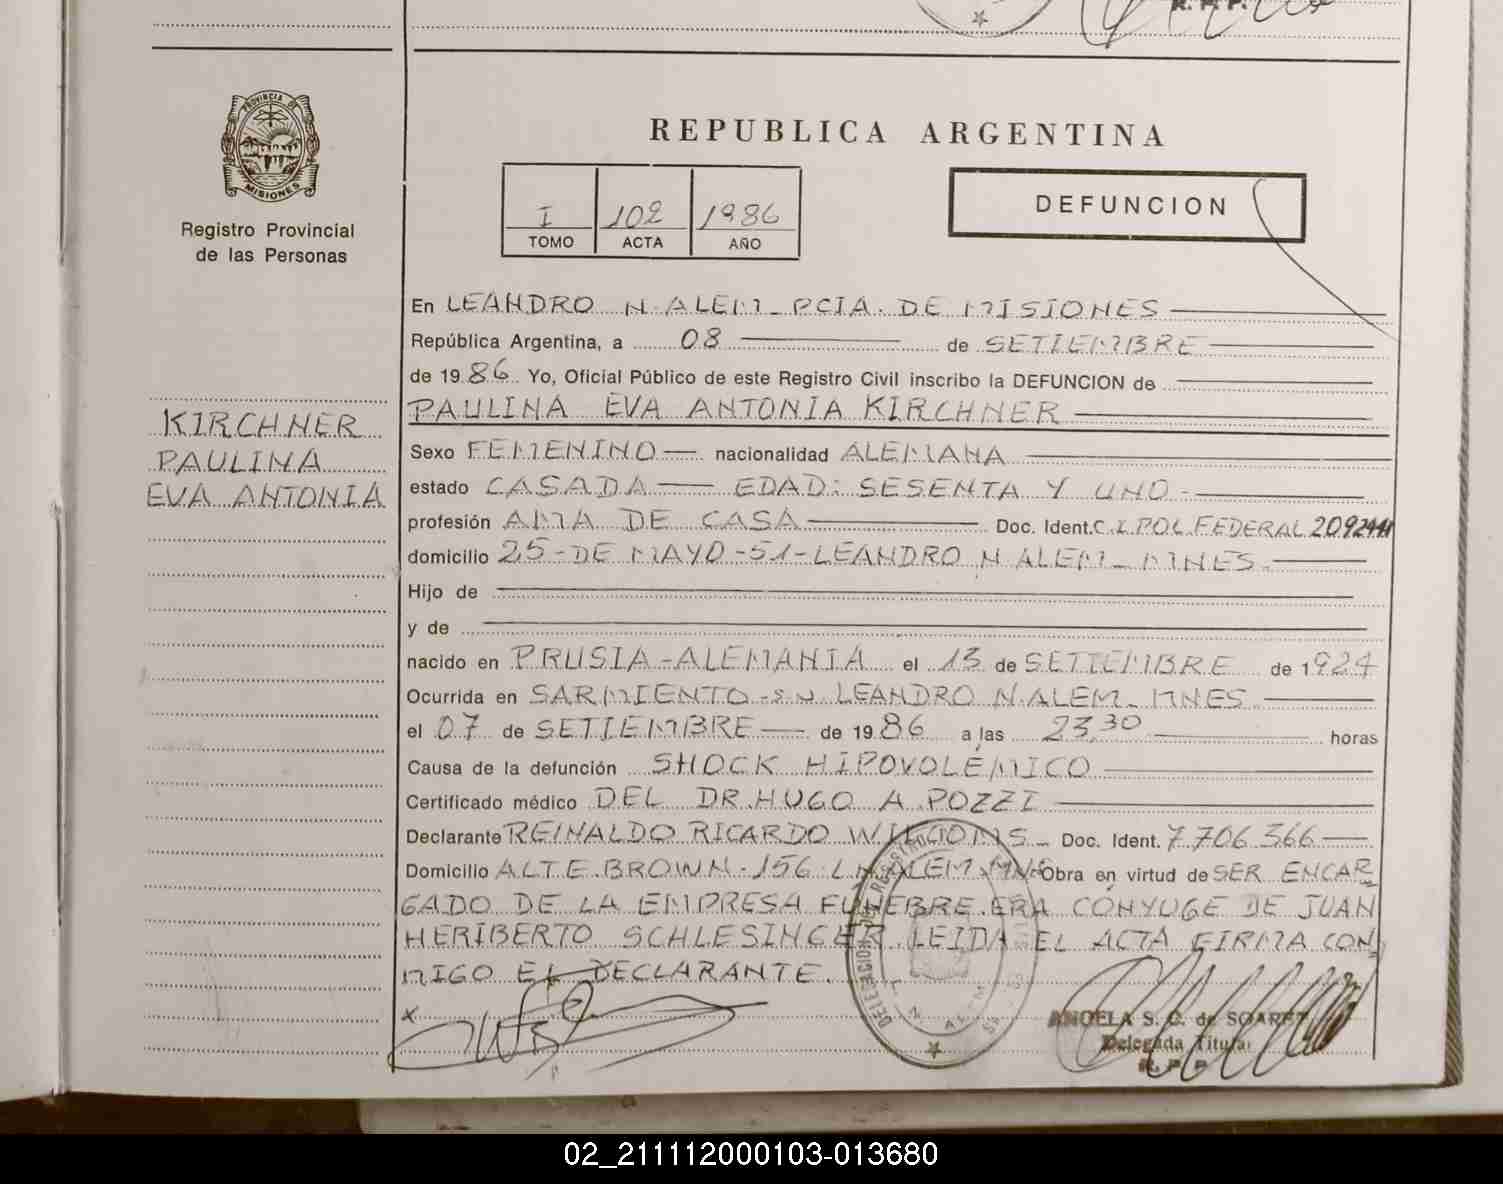 R. P. P.
PROVINCIA DE
MISIONES
Registro Provincial
de las Personas
REPUBLICA ARGENTINA
I 102 1986
TOMO ACTA AÑO
DEFUNCION
En LEANDRO N. ALEM - PCIA. DE MISIONES
República Argentina, a 08 de SETIEMBRE
de 1986 Yo, Oficial Público de este Registro Civil inscribo la DEFUNCION de
PAULINA EVA ANTONIA KIRCHNER
KIRCHNER
PAULINA
EVA ANTONIA
Sexo FEMENINO nacionalidad ALEMANA
estado CASADA EDAD: SESENTA Y UNO
profesión AMA DE CASA Doc. Ident. C. I. POL. FEDERAL
domicilio 25-DE MAYO-51-LEANDRO N ALEM - MNES.
Hijo de
y de
nacido en PRUSIA-ALEMANIA el 13 de SETIEMBRE de 1924
Ocurrida en SARMIENTO-S.N. LEANDRO N. ALEM - MNES
el 07 de SETIEMBRE de 1986 a las 23,30 horas
Causa de la defunción SHOCK HIPOVOLÉMICO
Certificado médico DEL DR. HUGO A POZZI
Declarante REINALDO RICARDO Doc. Ident. 7706366
Domicilio ALTE. BROWN-156 L.N. ALEM. MNS Obra en virtud de SER ENCAR
GADO DE LA EMPRESA FUNEBRE. ERA CÓNYUGE DE JUAN
HERIBERTO SCHLESINGER LEIDA EL ACTA FIRMA CON-
MIGO EL DECLARANTE.
X
ANGELA S. C. de SOAREZ
Delegada Titular
R. P. P.
02_211112000103-013680